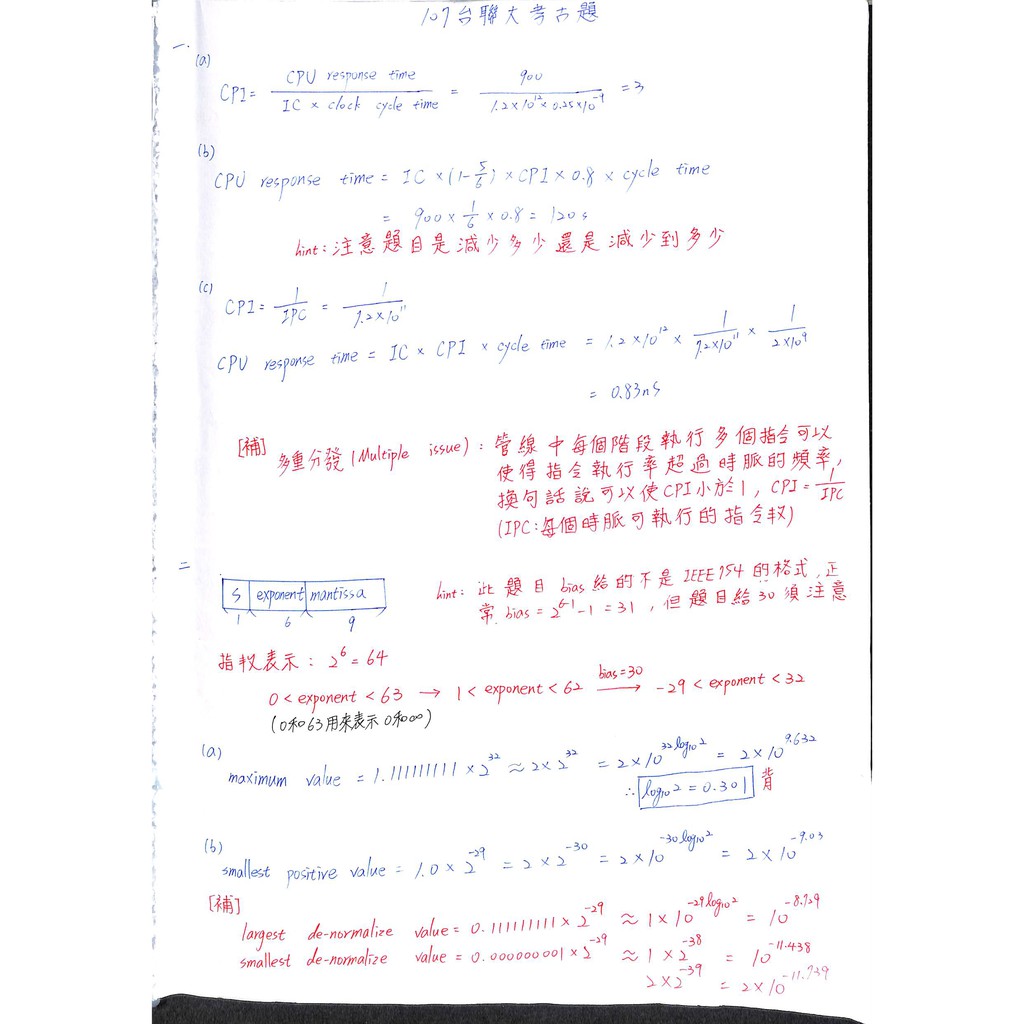 107台聯大考古題
一.
(a)
CPI = CPU response time / IC × clock cycle time = 900 / 1.2×10^12 × 0.25×10^-9 = 3
(b)
CPU response time = IC × (1-5/6) × CPI × 0.8 × cycle time
= 900 × 1/6 × 0.8 = 120 s
hint : 注意題目是減少多少還是減少到多少
(c)
CPI = 1/IPC = 1/7.2×10^11
CPU response time = IC × CPI × cycle time = 1.2×10^12 × 1/7.2×10^11 × 1/2×10^9
= 0.83ns
[補] 多重分發 (Multiple issue) : 管線中每個階段執行多個指令可以
使得指令執行率超過時脈的頻率,
換句話說可以使CPI小於1, CPI = 1/IPC
(IPC:每個時脈可執行的指令數)
二
S exponent mantissa
1 6 9
hint : 此題目 bias 給的不是 IEEE 754 的格式, 正
常 bias = 2^6-1 - 1 = 31, 但題目給30須注意
指數表示 : 2^6 = 64
0 < exponent < 63 → 1 < exponent < 62 bias=30 → -29 < exponent < 32
(0和63用來表示0和∞)
(a)
maximum value = 1.111111111 × 2^32 ≈ 2×2^32 = 2×10^32log₁₀2 = 2×10^9.632
∴ log₁₀2 = 0.301 背
(b)
smallest positive value = 1.0 × 2^-29 = 2×2^-30 = 2×10^-30log₁₀2 = 2×10^-9.03
[補]
largest de-normalize value = 0.111111111 × 2^-29 ≈ 1×10^-29log₁₀2 = 10^-8.729
smallest de-normalize value = 0.000000001 × 2^-29 ≈ 1×2^-38 = 10^-11.438
2×2^-39 = 2×10^-11.739